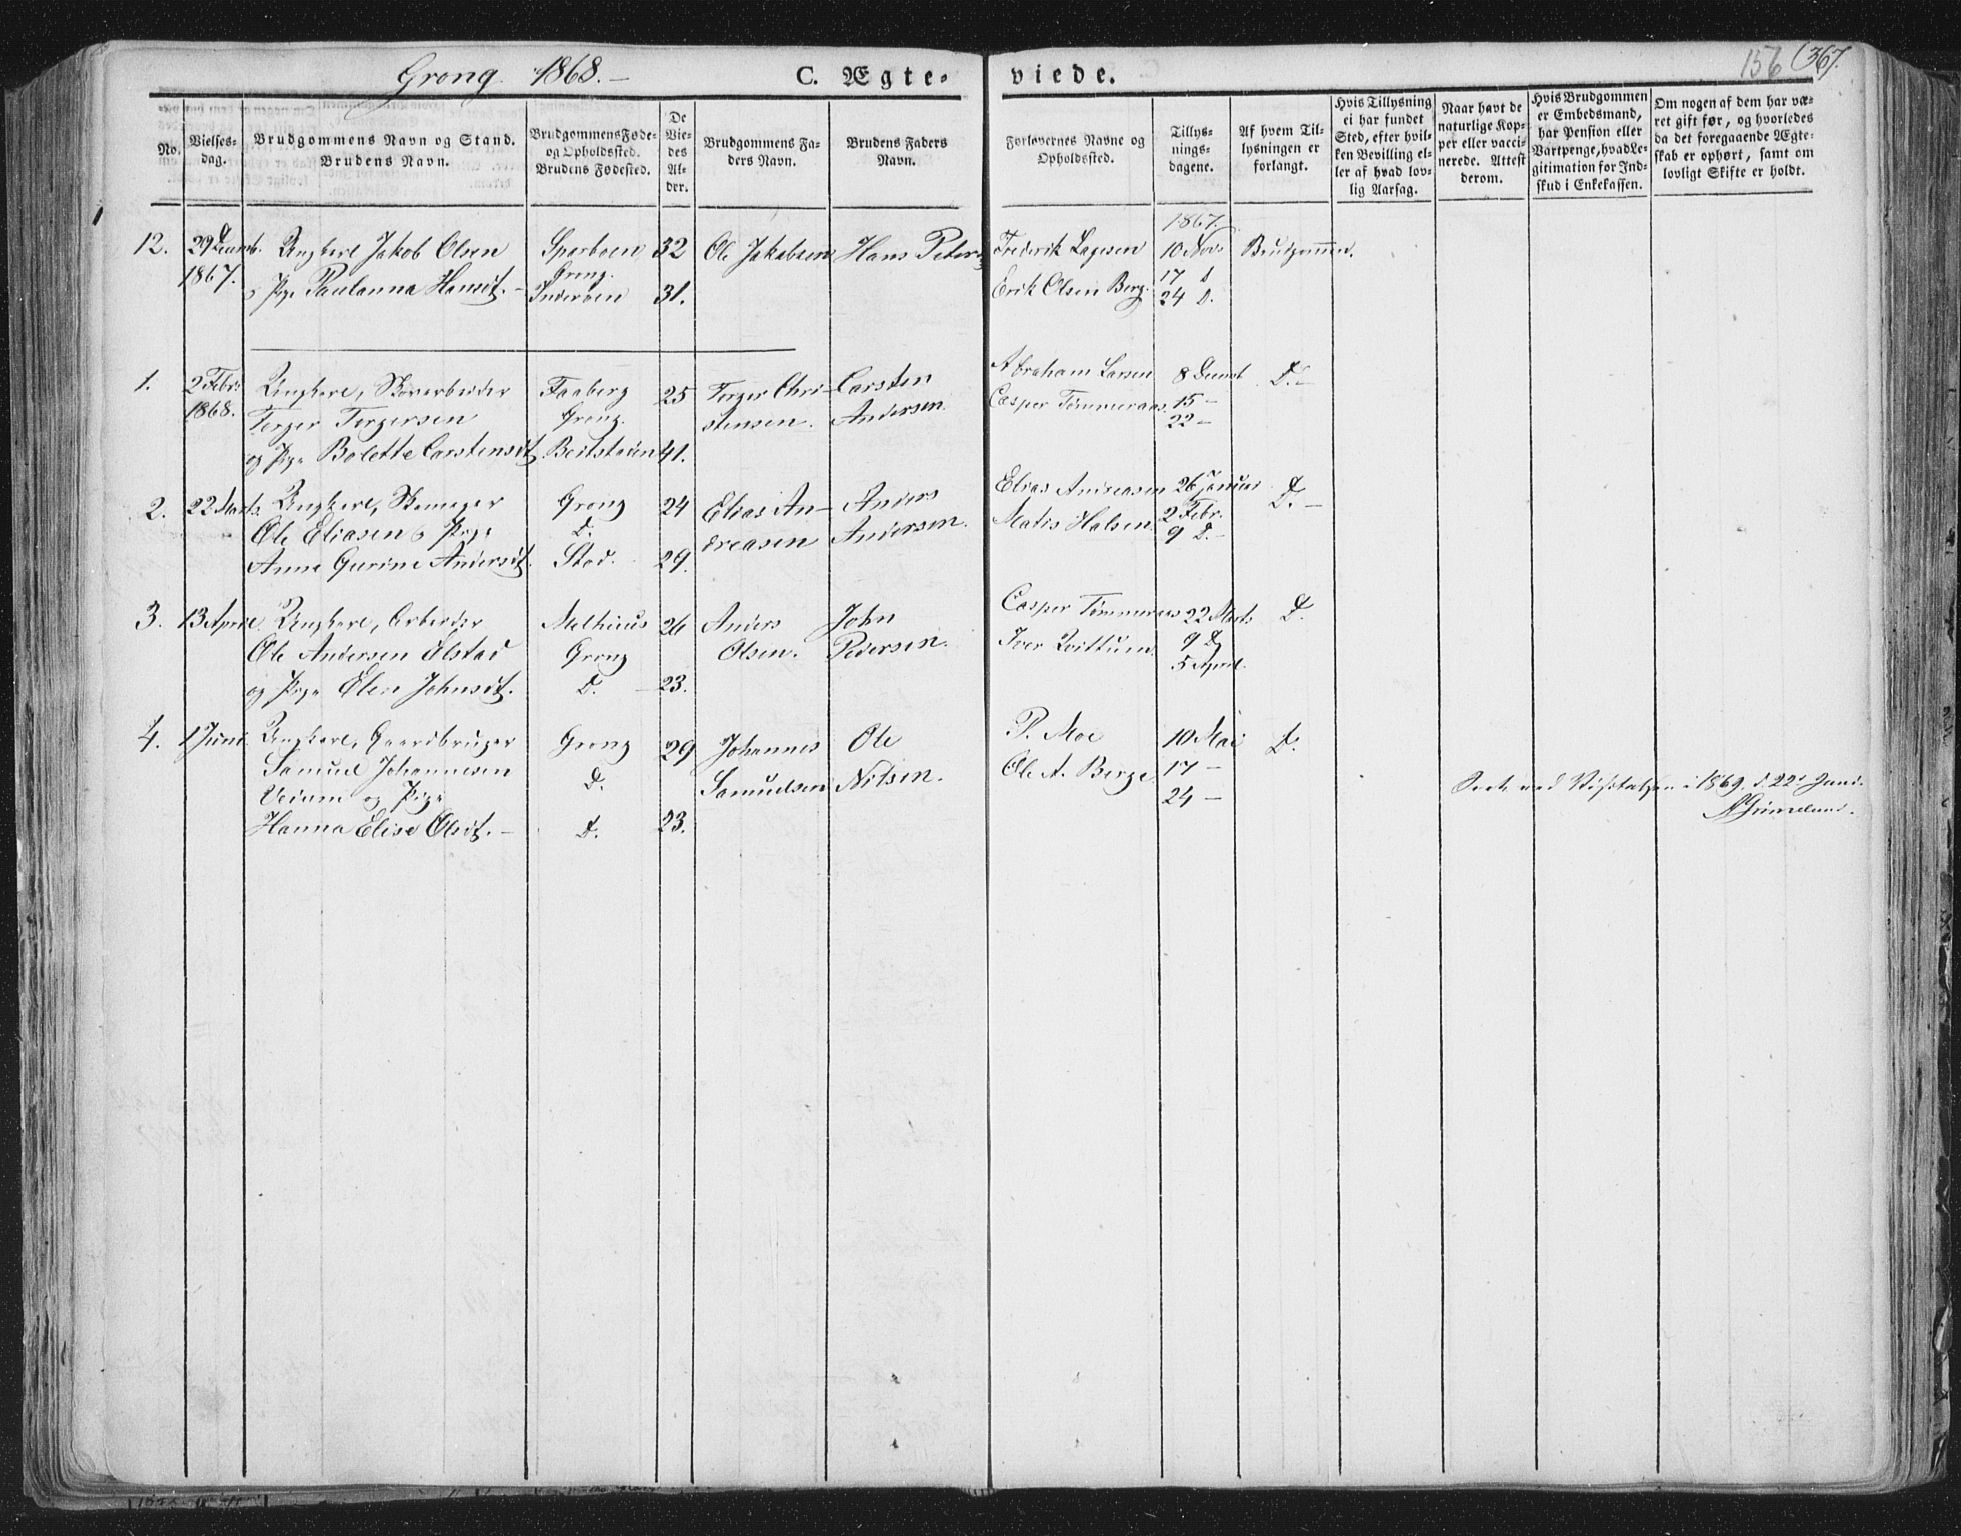 Grong 1868.-
C. Ægte-
viede.
156
(367.
No.
Vielses-
dag.
Brudgommens Navn og Stand.
Brudens Navn.
Brudgommens Føde-
og Opholdssted.
Brudens Fødested.
De
Vie-
des
Al-
der.
Brudgommens Fa-
ders Navn.
Brudens Faders
Navn.
Forlovernes Navne og
Opholdssted.
Tillys-
nings-
dagene.
Af hvem Til-
lysningen er
forlangt.
Hvis Tillysning
ei har fundet
Sted, efter hvil-
ken Bevilling el-
ler af hvad lov-
lig Aarsag.
Naar havt de
naturlige Kop-
per eller vacci-
nerede. Attest
derom.
Hvis Brudgommen
er Embedsmand,
har Pension eller
Vartpenge, hvad Le-
gitimation for Ind-
skud i Enkekassen.
Om nogen af dem har væ-
ret gift før, og hvorledes
da det foregaaende Ægte-
skab er ophørt, samt om
lovligt Skifte er holdt.
12.
29 Decemb.
1867.
Ungkarl Jakob Olsen
o Pige Paulanna Hansdt. -
Sparboen
Grong.
Inderøen
32
31.
Ole Jakobsen
Hans Peters
Frederik Lagesen
Erik Olsen Berg.
1867.
10 Nov.
17 D
24 D.
Brudgommen.
1.
2 Febr.
1868.
Ungkarl, Skovarbeider
Torger Torgersen
og Pige Bolette Carstensdt.
Faaberg
Grong.
Beitstaden
25
41.
Torger Chri-
stensen.
Carsten
Andersen.
Abraham Larsen
Casper Tømmeraas
8 Decemb
15 -
22 -
D. -
2.
22 Marts.
Ungkarl,
Ole Eliasen o Pige
Anne Gurine Andersdt.
Grong
D.
Stod.
24
29.
Elias An-
dreasen
Anders
Andersen.
Elias Andreasen
Matis Halsen.
26 Januar
2 Febr.
9 D. -
D. -
3.
13 April
Ungkarl, Arbeider
Ole Andersen Ølstad
og Pige Elen Johnsdt.
Melhuus
Grong
D.
26
23.
Anders
Olsen.
John
Pedersen.
Casper Tømmeraas
Iver Qvittum.
22 Marts
9 D
5 April.
D.
4.
1 Juni.
Ungkarl, Gaardbruger
Samuel Johannesen
Veiem og Pige
Hanna Elise Olsdt. -
Grong
D.
D.
29
23.
Johannes
Samuelsen
Ole
Nilsen.
P. Moe
Ole A. Berge
10 Mai
17 -
24 -
D.
ved Visitatsen i 1869. d. 22 Juni.
Grimelund.